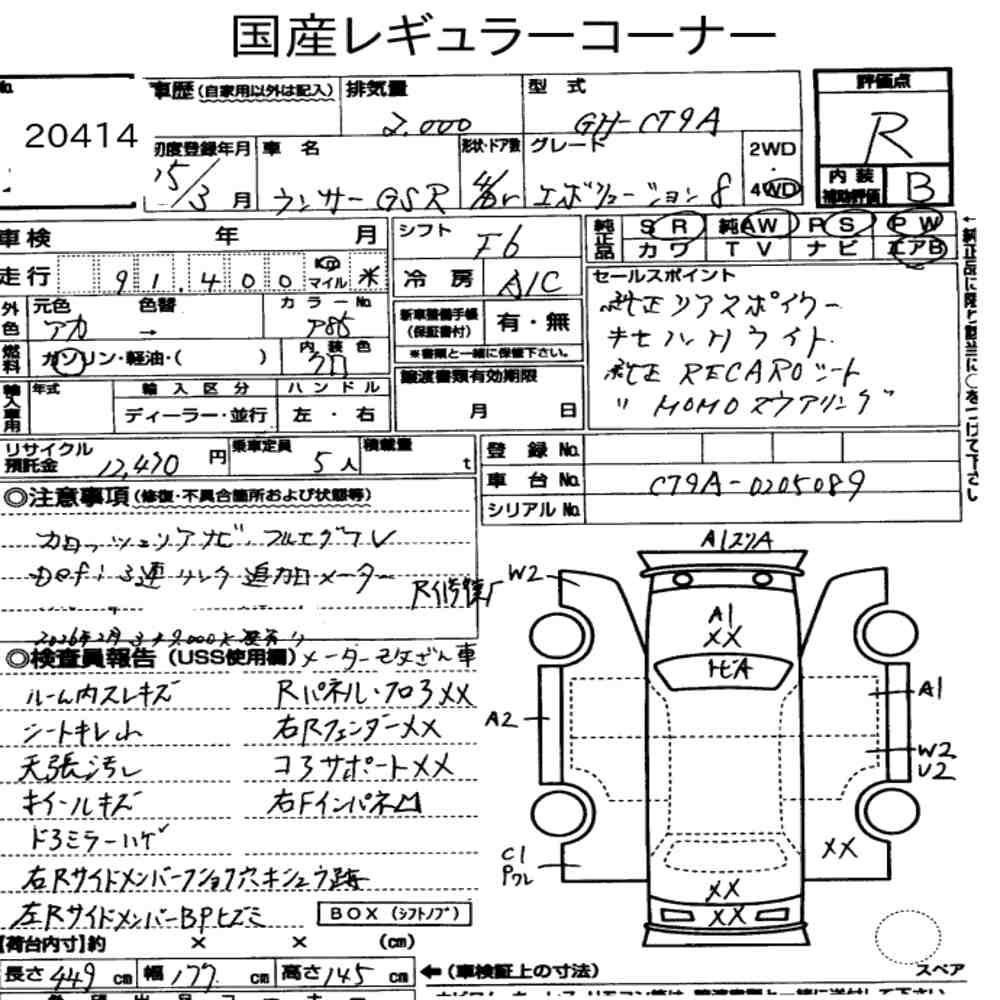 国産レギュラーコーナー
No.
20414
車歴 (自家用以外は記入)
排気量
2.000
型 式
GH-CT9A
評価点
R
内装補助評価 B
初度登録年月
15/3月
車 名
ランサー GSR
形状・ドア数
4/
グレード
エボリューション 8
2WD
4WD
車検 年 月
走行 91.400 マイル 米
外色 元色 色替 カラーNo.
アカ → P85
燃料 ガソリン・軽油・( )
内装色 クロ
輸入車用 年式 輸入区分 ハンドル
ディーラー・並行 左・右
シフト F6
冷房 A/C
新車整備手帳 (保証書付) 有・無
※書類と一緒に保管下さい。
譲渡書類有効期限
月 日
純正品 SR 純AW PS PW
カワ TV ナビ エアB
セールスポイント
純正リアスポイラー
キセノンライト
純正 RECAROシート
〃 MOMOステアリング
←純正品に限り該当に○をつけて下さい
リサイクル預託金 12,470円
乗車定員 5人
積載量 t
登録No.
車台No. CT9A-0205089
シリアルNo.
◎注意事項 (修復・不具合箇所および状態等)
カロッツェリアナビ・フルセグTV
Defi 3連リンク追加メーター
R修復
◎検査員報告 (USS使用欄) メーター改ざん車
ルーム内スレキズ
シートキレ小
天張汚レ
ホイールキズ
ドアミラーハゲ
RパネルフロアXX
右RフェンダーXX
コアサポートXX
右Fインパネ凹
右Rサイドメンバー
左RサイドメンバーBPヒズミ
BOX (シフトノブ)
A1
W2
A1
XX
トビA
A1
A2
W2
U2
C1
XX
XX
XX
【荷台内寸】約 × × (cm)
長さ 449 cm 幅 177 cm 高さ 145 cm
←(車検証上の寸法)
スペア